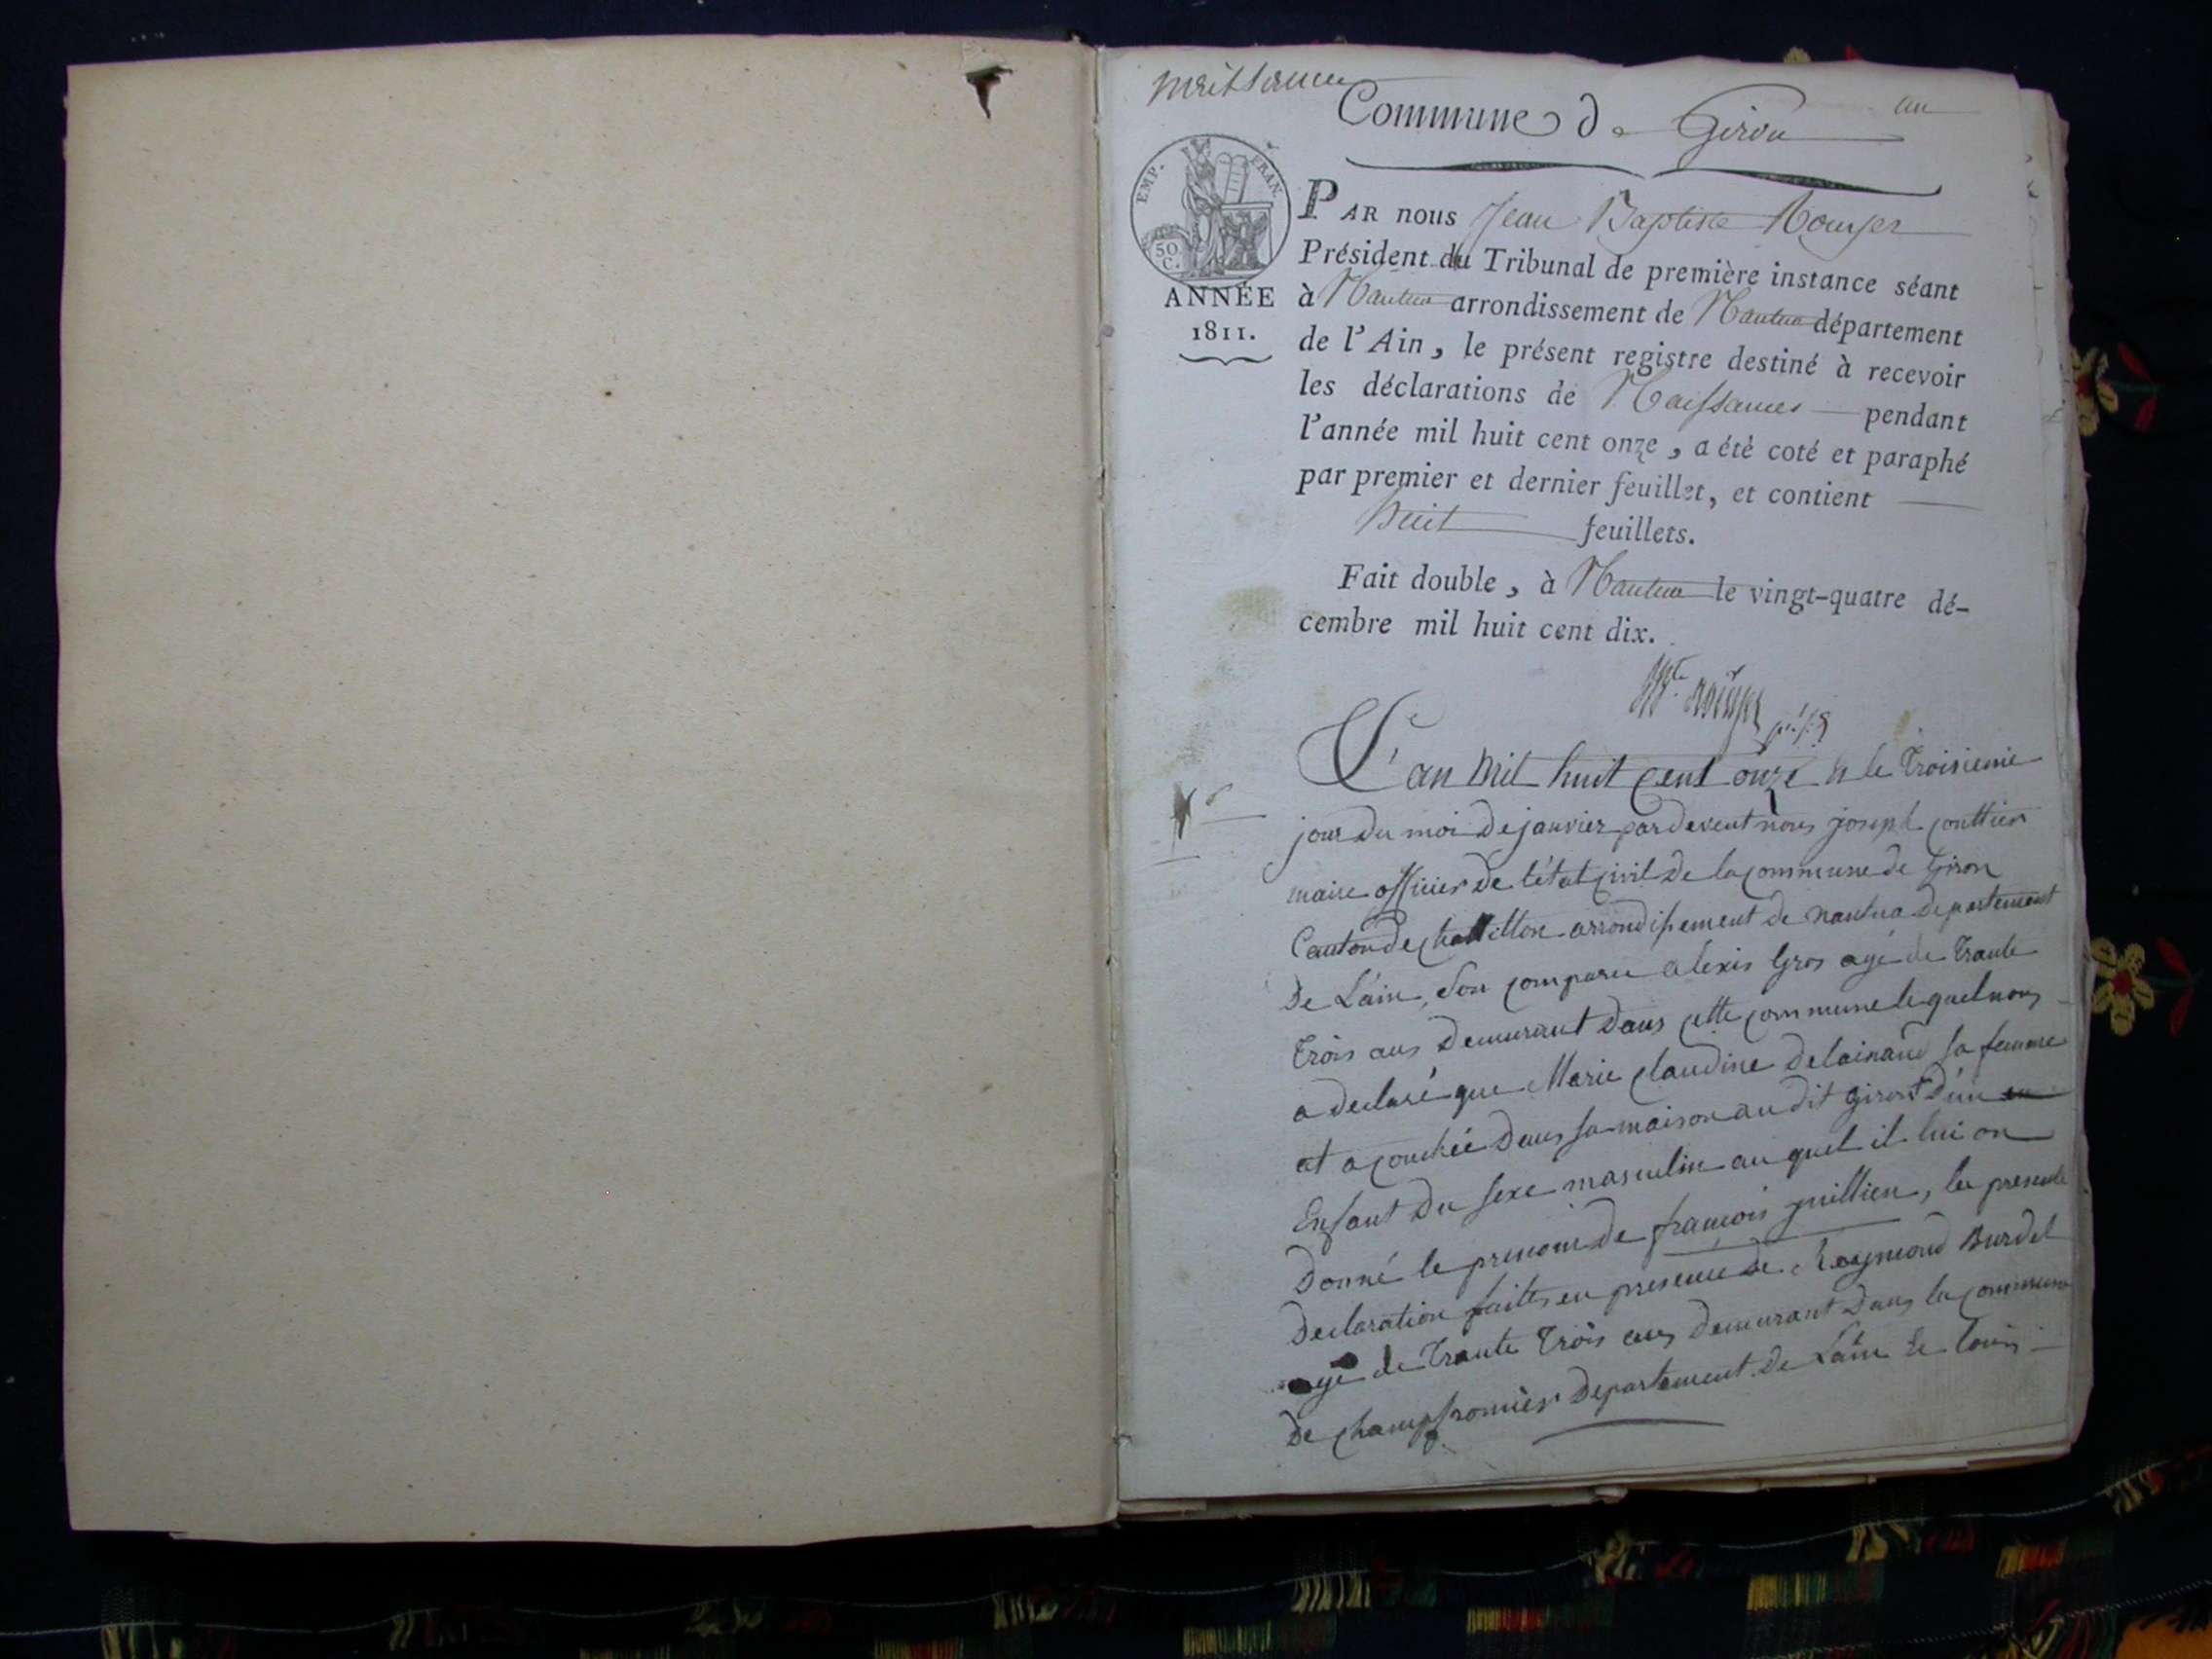 Naissances
Commune de Giron
an
EMP. FRAN.
50 C.
ANNÉE
1811.
PAR nous Jean Baptiste Rouyer
Président du Tribunal de première instance séant
à Nantua arrondissement de Nantua département
de l'Ain, le présent registre destiné à recevoir
les déclarations de Naissances pendant
l'année mil huit cent onze, a été coté et paraphé
par premier et dernier feuillet, et contient
huit feuillets.
Fait double, à Nantua le vingt-quatre dé-
cembre mil huit cent dix.
L'an mil huit cent onze & le troisieme
jour du moi de janvier par devent nous joseph
maire officier de l'état civil de la commune de Giron
Canton de Chatillon arrondissement de nantua departement
De L'ain, son comparu alexis Gros agé de trante
trois ans demeurant dans cette commune le quel nous
a declaré que Marie claudine Delainaud sa femme
at acouchée dans sa maison au dit giron d'un
Enfant du sexe masculin au quel il lui on
Donné le prenom de françois jullien, la presente
Declaration faites en presence de Raymond Burdet
agé de trante trois ans demeurant dans la commune
de champfromier departement de L'ain &